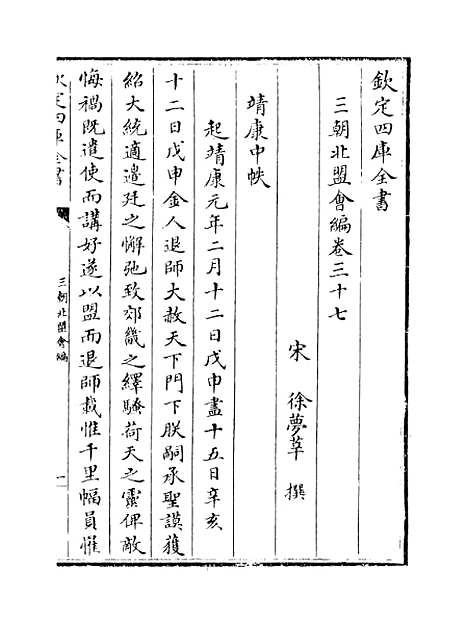 欽定四庫全書
三朝北盟會編卷三十七
宋 徐夢莘 撰
靖康中帙
起靖康元年二月十二日戊申盡十五日辛亥
十二日戊申金人退師大赦天下門下朕嗣承聖謨獲
紹大統適邊廷之懈弛致郊畿之繹騷荷天之靈俾敵
悔禍既遣使而講好遂以盟而退師載惟千里幅員惟
欽定四庫全書
三朝北盟會編
一